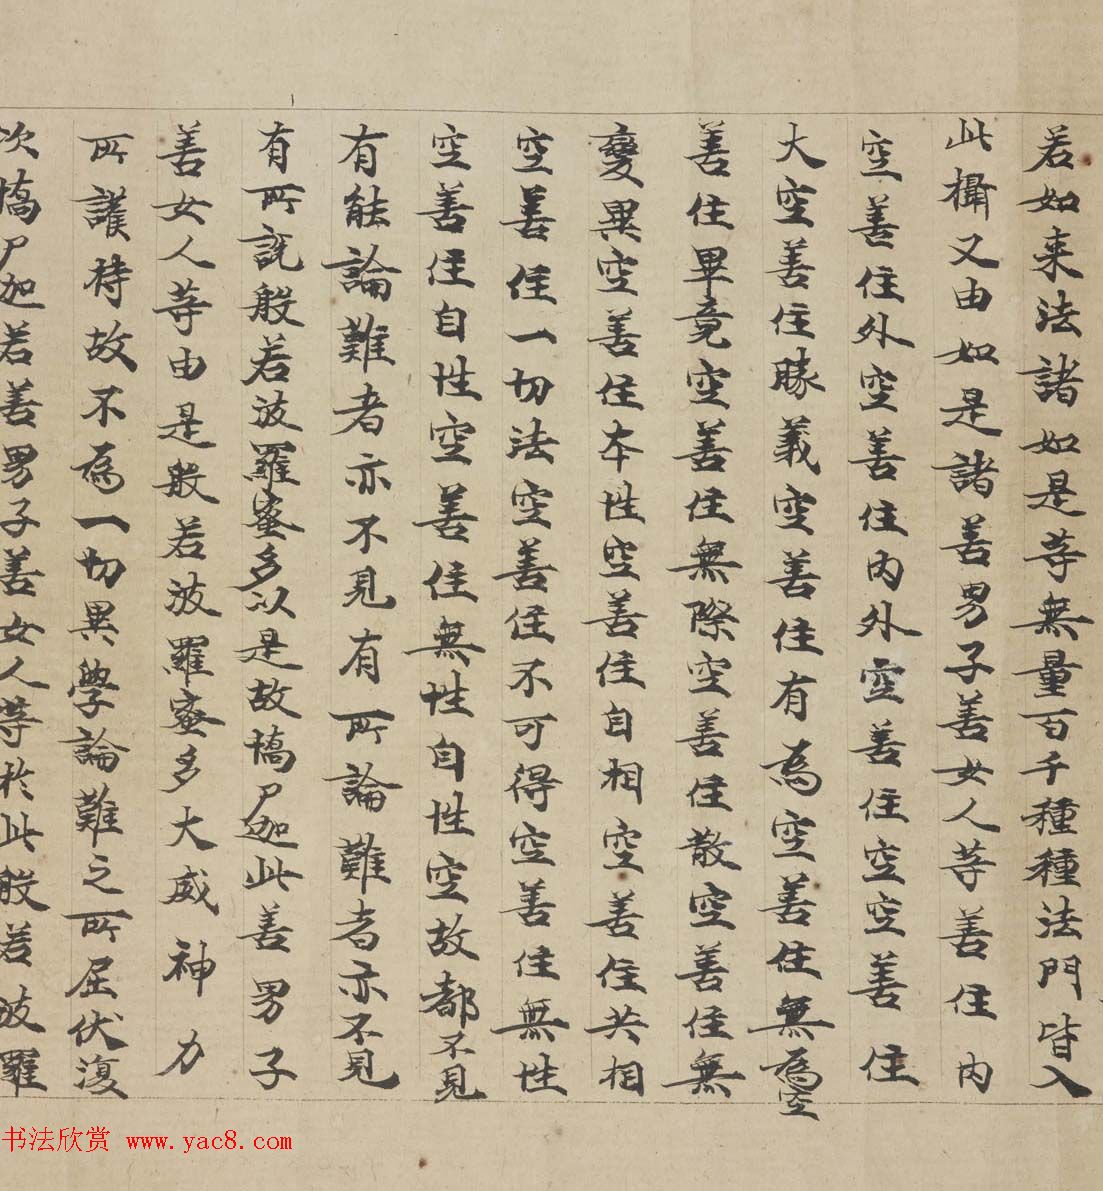 若如来法諸如是等無量百千種種法門皆入
此攝又由如是諸善男子善女人等善住內
空善住外空善住內外空善住空空善住
大空善住勝義空善住有為空善住無為空
善住畢竟空善住無際空善住散空善住無
變異空善住本性空善住自相空善住共相
空善住一切法空善住不可得空善住無性
空善住自性空善住無性自性空故都不見
有能論難者亦不見有所論難者亦不見
有所說般若波羅蜜多以是故憍尸迦此善男子
善女人等由是般若波羅蜜多大威神力
所護持故不為一切異學論難之所屈伏復
次憍尸迦若善男子善女人等於此般若波羅
书法欣赏 www.yac8.com